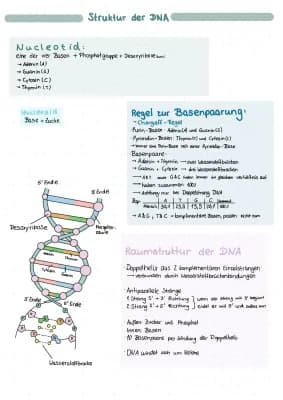 Struktur der DNA
Nucleotid:
eine der vier Basen + Phosphatgruppe + Desoxyribose
→ Adenin (A)
→ Guanin (G)
→ Cytosin (C)
→ Thymin (T)
Nucleosid:
Base + Zucker
Regel zur Basenpaarung:
→ Chargaff-Regel
Purin-Basen: Adenin (A) und Guanin (G)
Pyrimidin-Basen: Thymin (T) und Cytosin (C)
→ immer eine Purin-Base mit einer Pyrimidin-Base
Basenpaare:
→ Adenin + Thymin → zwei Wasserstoffbrücken
→ Guanin + Cytosin → drei Wasserstoffbrücken
A&T und G&C haben immer im gleichen Verhältnis auf
haben zusammen 100%
→ Achtung nur bei Doppelstrang DNA
A T G C
→ A&G, T&C = komplementäre Basen, passen nicht zum
5' Ende
3' Ende
Desoxyribose
Phosphor-
säure
3' Ende
5' Ende
Wasserstoffbrücke
Raumstruktur der DNA
Doppelhelix aus 2 komplementären Einzelsträngen
→ verbunden durch Wasserstoffbrückenbindungen
Antiparallele Stränge
1 Strang 5' → 3' Richtung
2 Strang 3' → 5' Richtung
wenn der Strang mit 5' beginnt
endet er mit 3' und andersrum
Außen: Zucker und Phosphat
Innen: Basen
10 Basenpaare pro Windung der Doppelhelix
DNA windet sich um Histone